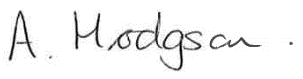 A. Hodgson.